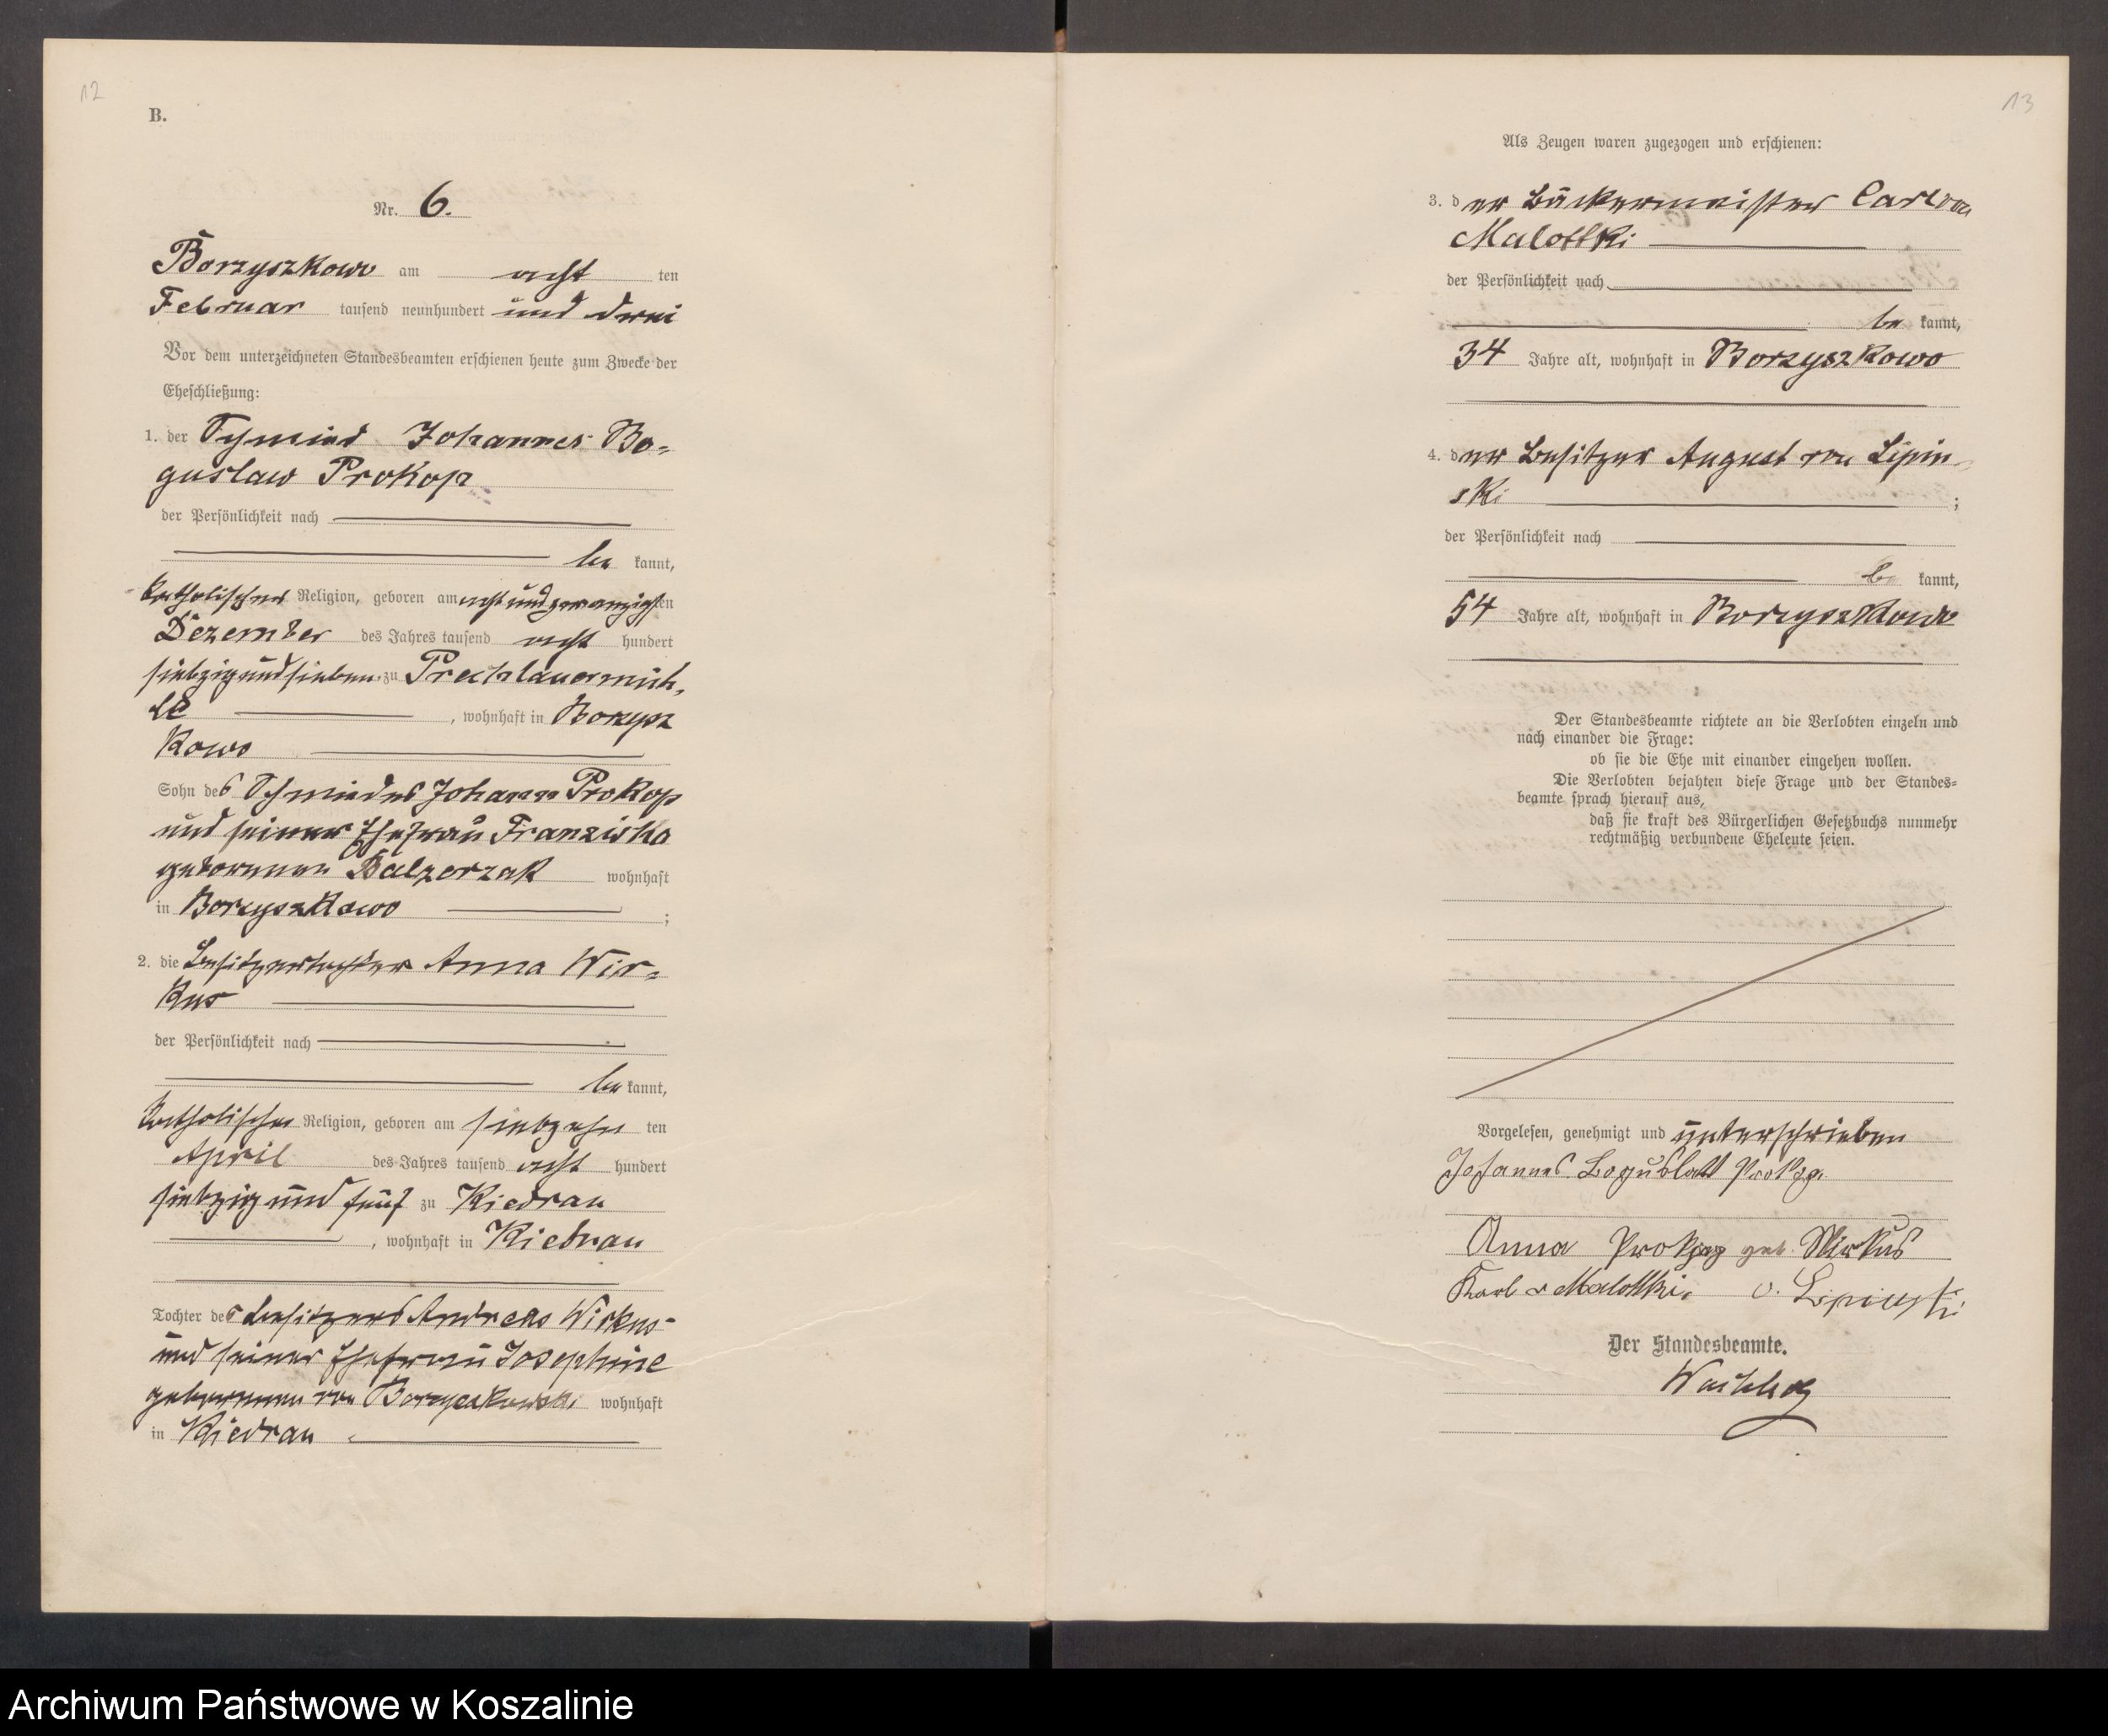 12
B.
Nr. 6.
Borzyszkowo am acht ten
Februar tausend neunhundert und drei
Vor dem unterzeichneten Standesbeamten erschienen heute zum Zwecke der
Eheschließung:
1. der Schmied Johannes Bo-
guslaw Prokop
der Persönlichkeit nach
be kannt,
katholischer Religion, geboren am acht und zwanzigsten
Dezember des Jahres tausend acht hundert
siebzig und sieben zu Prechlauermüh-
le , wohnhaft in Borzysz
kowo
Sohn des Schmiedes Johann Prokop
und seiner Ehefrau Franziska
geborenen Balzerzak wohnhaft
in Borzyszkowo ;
2. die Besitzertochter Anna Wir-
kus
der Persönlichkeit nach
be kannt,
katholischer Religion, geboren am siebzehn ten
April des Jahres tausend acht hundert
siebzig und fünf zu Kiedrau
, wohnhaft in Kiedrau
Tochter des Besitzers Andreas Wirkus
und seiner Ehefrau Josephine
geborenen von Borzyszkowski wohnhaft
in Kiedrau
13
Als Zeugen waren zugezogen und erschienen:
3. der Bäckermeister Carl von
Malottki
der Persönlichkeit nach
be kannt,
34 Jahre alt, wohnhaft in Borzyszkowo
4. der Besitzer August von Lipin-
ski ;
der Persönlichkeit nach
be kannt,
54 Jahre alt, wohnhaft in Borzyszkowo
Der Standesbeamte richtete an die Verlobten einzeln und
nach einander die Frage:
ob sie die Ehe mit einander eingehen wollen.
Die Verlobten bejahten diese Frage und der Standes-
beamte sprach hierauf aus,
daß sie kraft des Bürgerlichen Gesetzbuchs nunmehr
rechtmäßig verbundene Eheleute seien.
Vorgelesen, genehmigt und unterschrieben
Johannes Boguslaw Prokop.
Anna Prokop geb. Wirkus
Karl v Malottki. v. Lipinski
Der Standesbeamte.
Archiwum Państwowe w Koszalinie